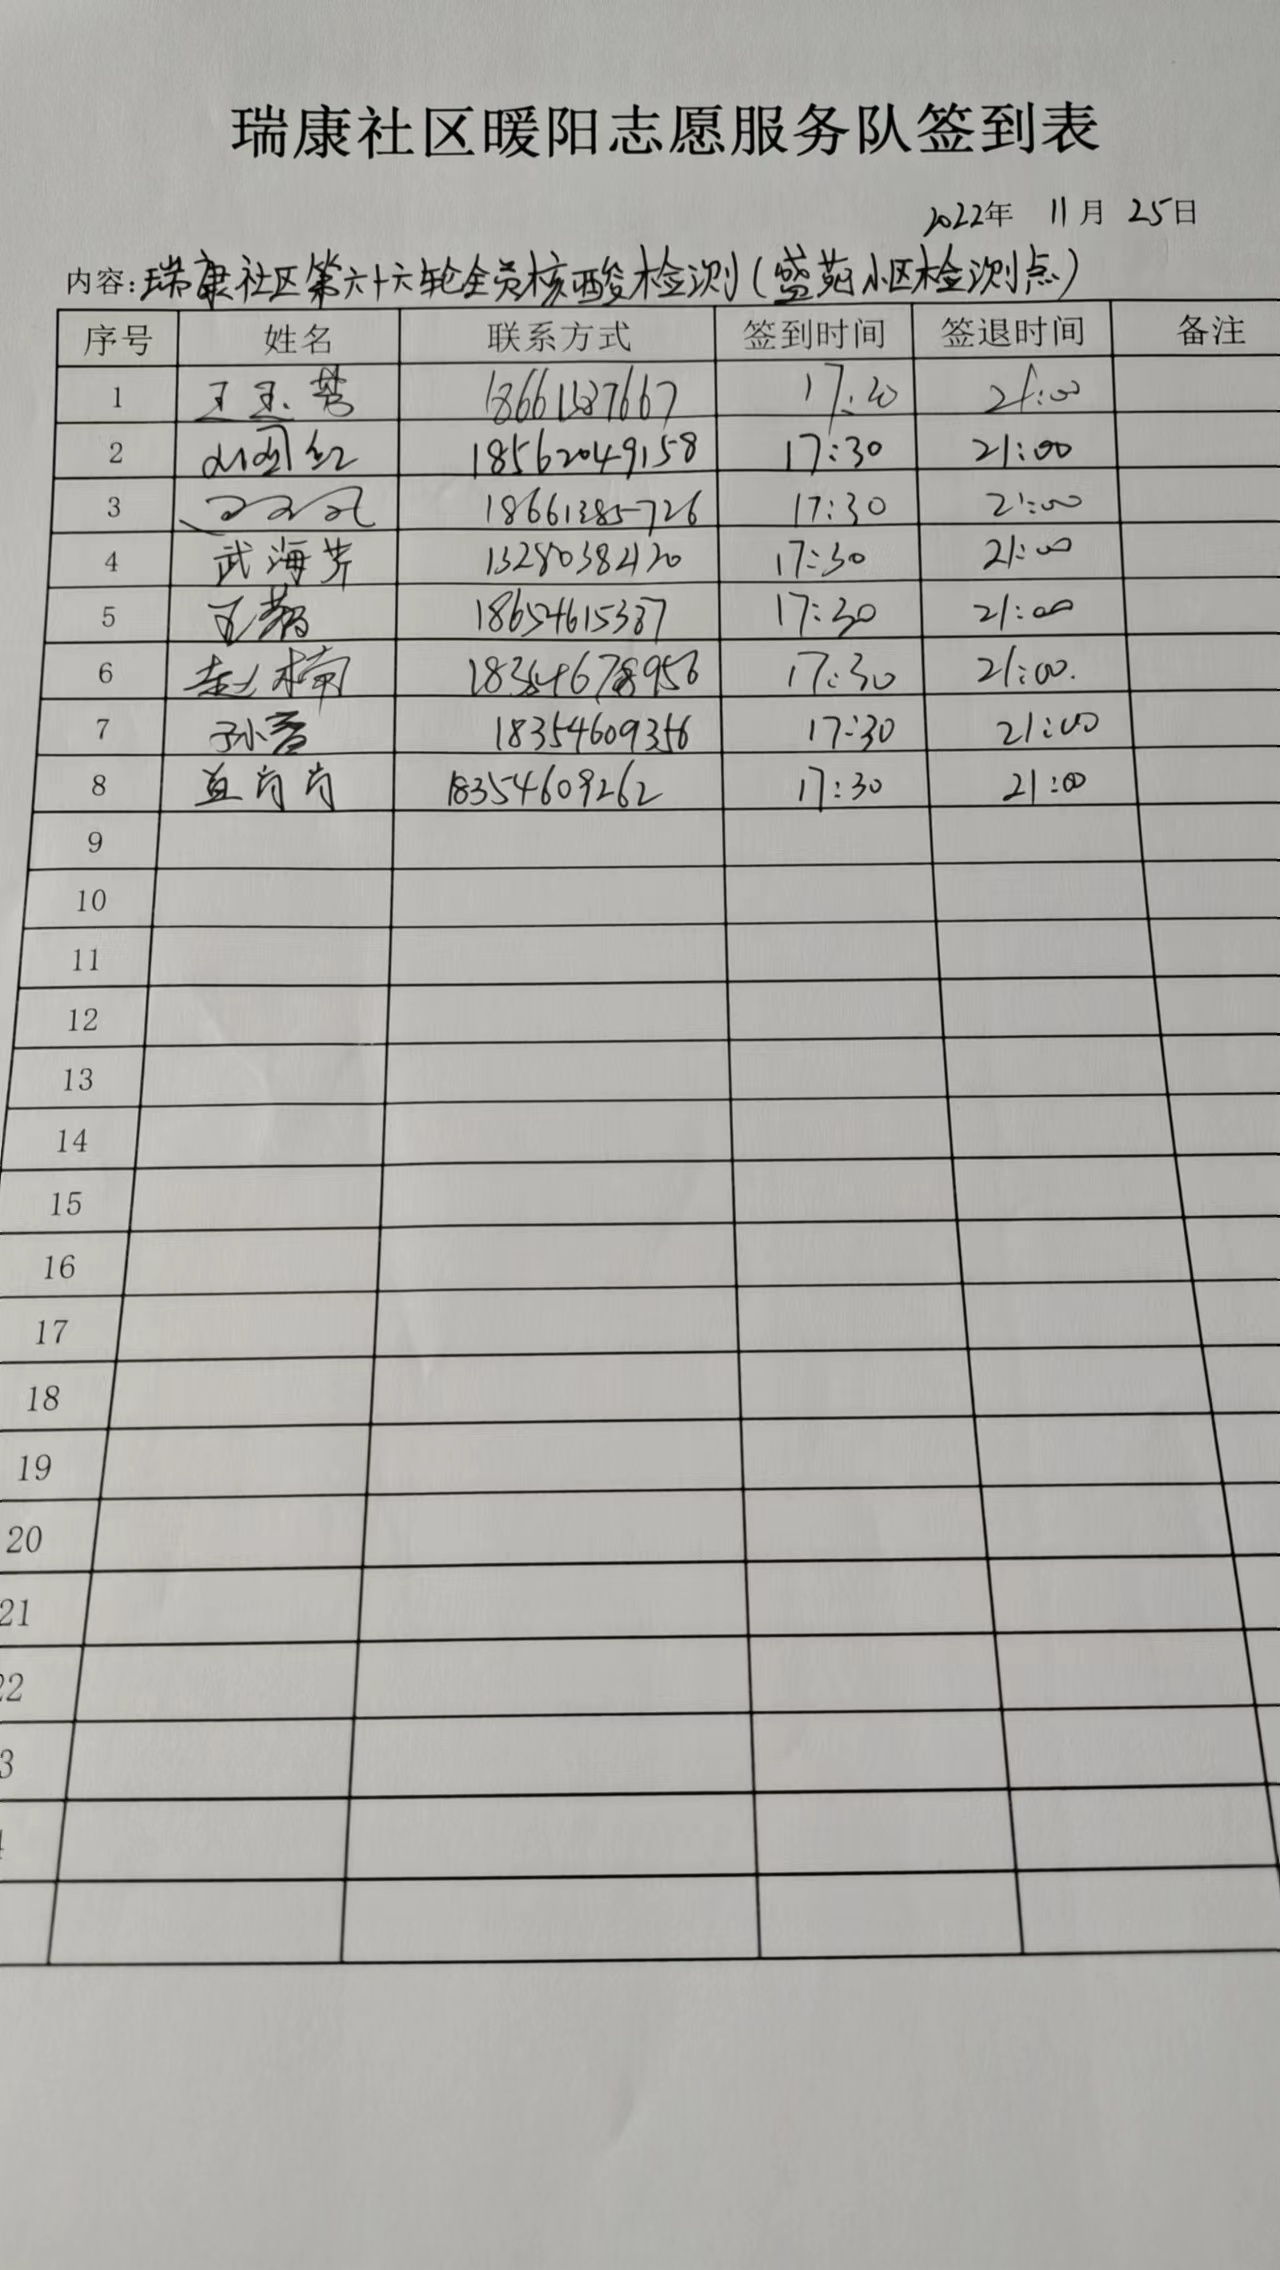 瑞康社区暖阳志愿服务队签到表
2022年 11月 25日
内容:瑞康社区第六十六轮全员核酸检测(盛苑小区检测点)
序号 姓名 联系方式 签到时间 签退时间 备注
1 王玉芬 21:00
2 18562049158 17:30 21:00
3 18661385726 17:30 21:00
4 武海芹 13280382120 17:30 21:00
5 18654615387 17:30 21:00
6 赵楠 17:30 21:00.
7 18354609356 17:30 21:00
8 18354609262 17:30 21:00
9
10
11
12
13
14
15
16
17
18
19
20
21
22
3
4